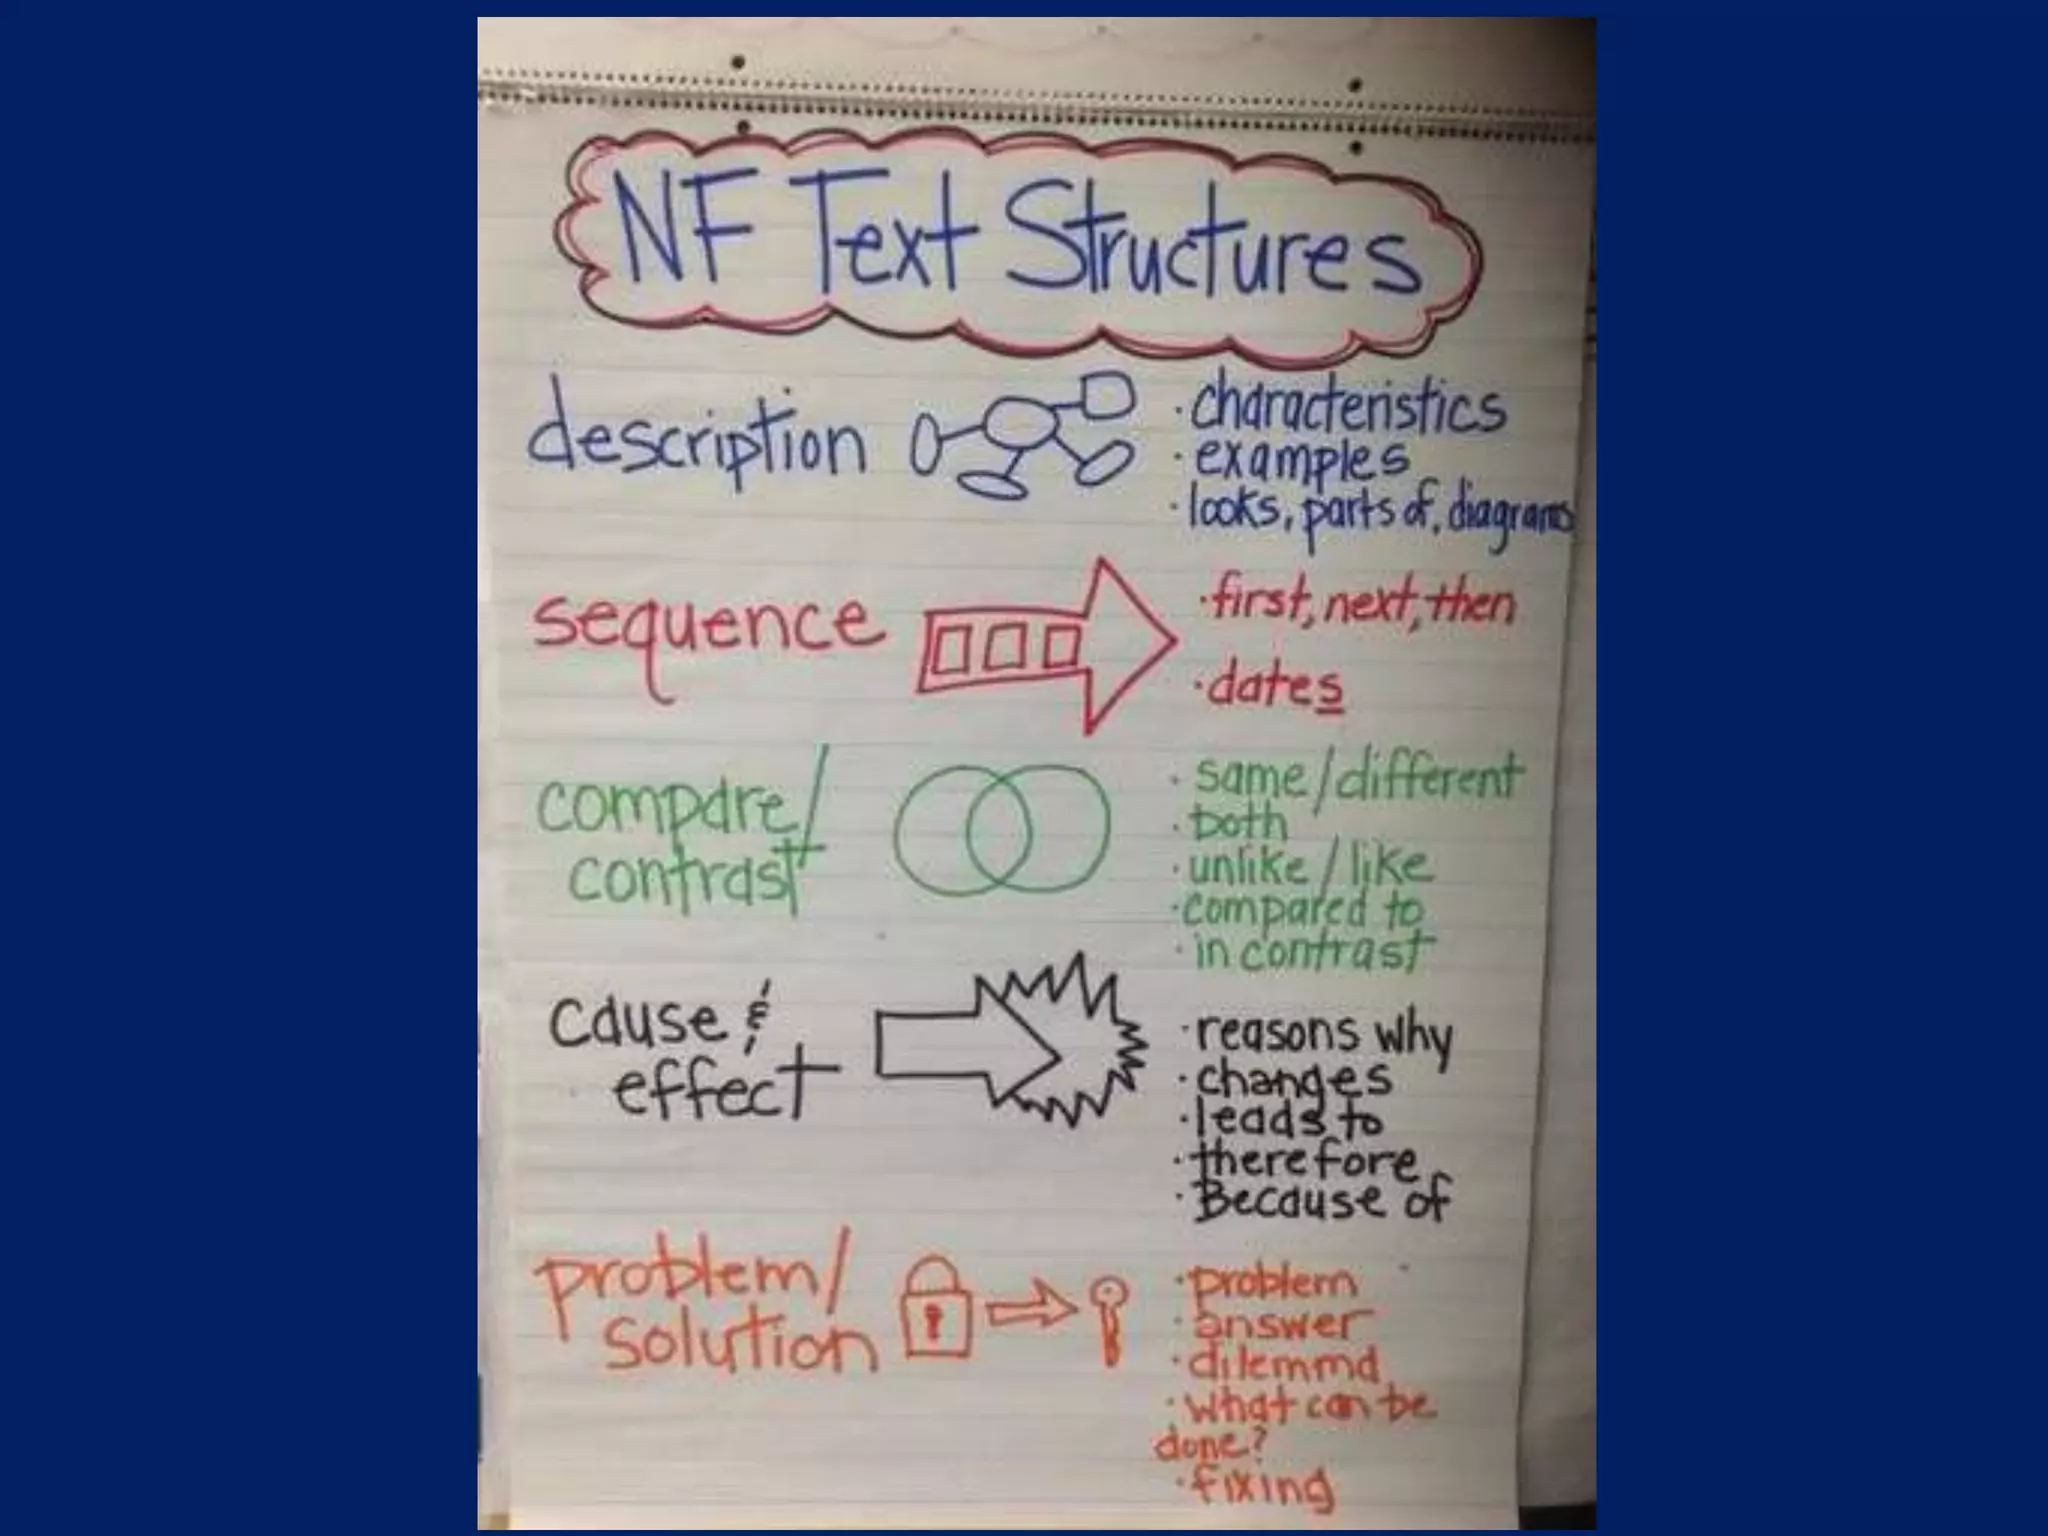 NF Text Structures
description
· characteristics
· examples
· looks, parts of, diagrams
sequence
· first, next, then
· dates
compare/
contrast
· same/different
· both
· unlike/like
· compared to
· in contrast
cause &
effect
· reasons why
· changes
· leads to
· therefore
· Because of
problem/
solution
· problem
· answer
· dilemma
· what can be
done?
· fixing